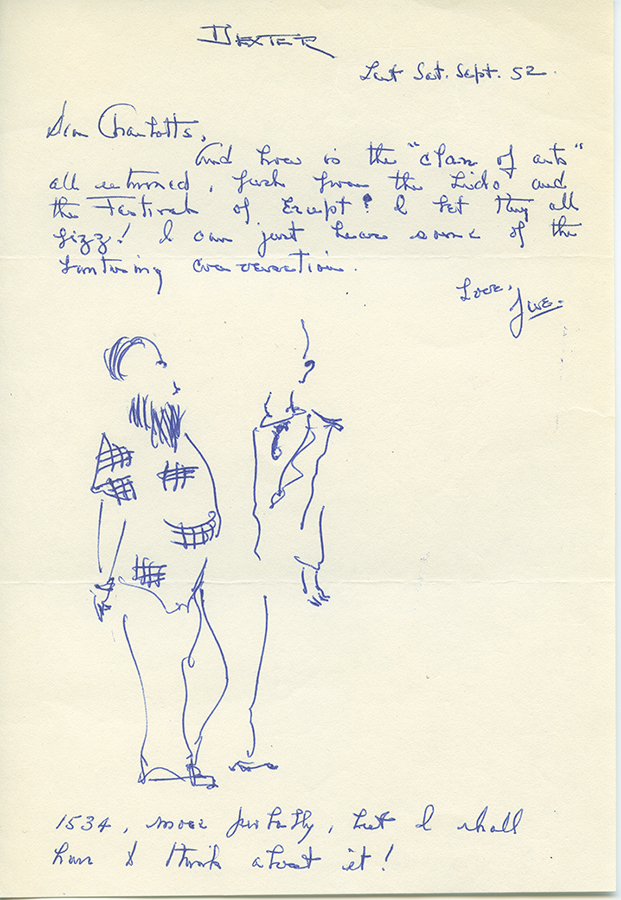 DEXTER
Last Sat. Sept. 52.
Dear Charlotte,
And how is the "clan of arts"
all returned, fresh from the Lido, and
the Festival of Except? I bet they all
fizz! I can just hear some of the
conversation.
Love,
1534, most probably, but I shall
have to think about it!